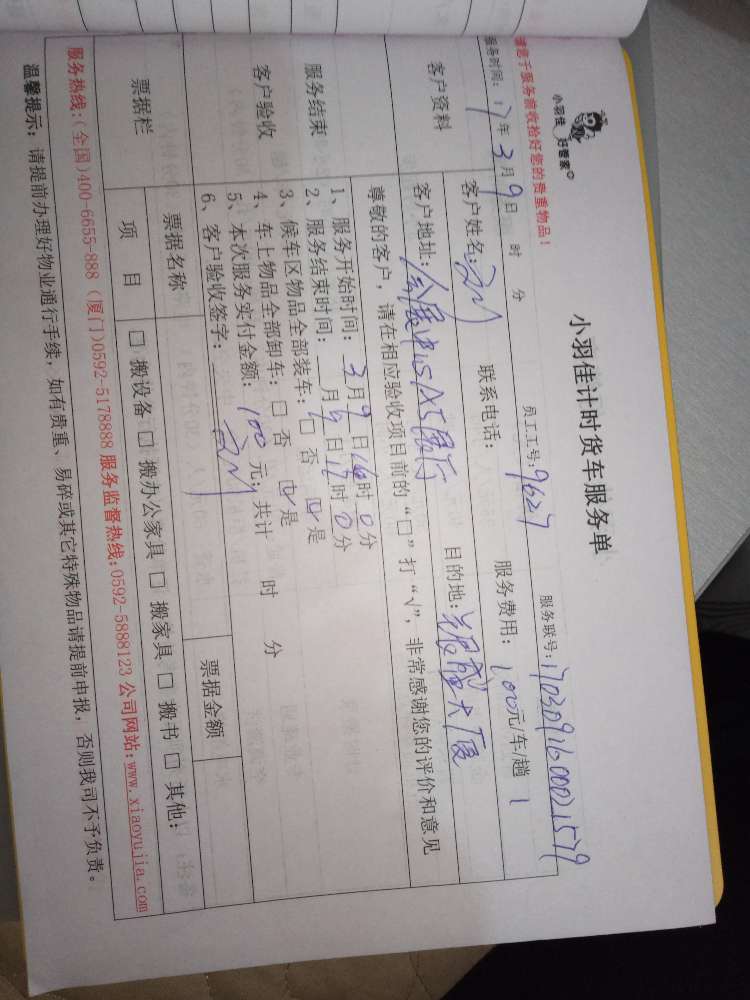 小羽佳 好管家
小羽佳计时货车服务单
请您于服务前收拾好您的贵重物品!
服务时间: 17年 3月 9日 时 分 员工工号: 9627 服务联号: 1703091600021579
客户资料
客户姓名: 联系电话: 服务费用: 100元/车/趟 1
客户地址: 会展中心A5展厅 目的地: 银盛大厦
服务结束
客户验收
尊敬的客户,请在相应验收项目前的“□”打“√”,非常感谢您的评价和意见
1、服务开始时间: 3月 9日 16时 0分
2、服务结束时间: 月 日 时 0分
3、候车区物品全部装车: □ 否 ☑ 是
4、车上物品全部卸车: □ 否 ☑ 是
5、本次服务实付金额: 100 元; 共计 时 分
6、客户验收签字:
票据栏
票据名称 票据金额
项 目 □ 搬设备 □ 搬办公家具 □ 搬家具 □ 搬书 □ 其他:
服务热线:(全国)400-6655-888 (厦门)0592-5178888 服务监督热线:0592-5888123 公司网站:www.xiaoyujia.com
温馨提示: 请提前办理好物业通行手续, 如有贵重、易碎或其它特殊物品请提前申报, 否则我司不予负责。